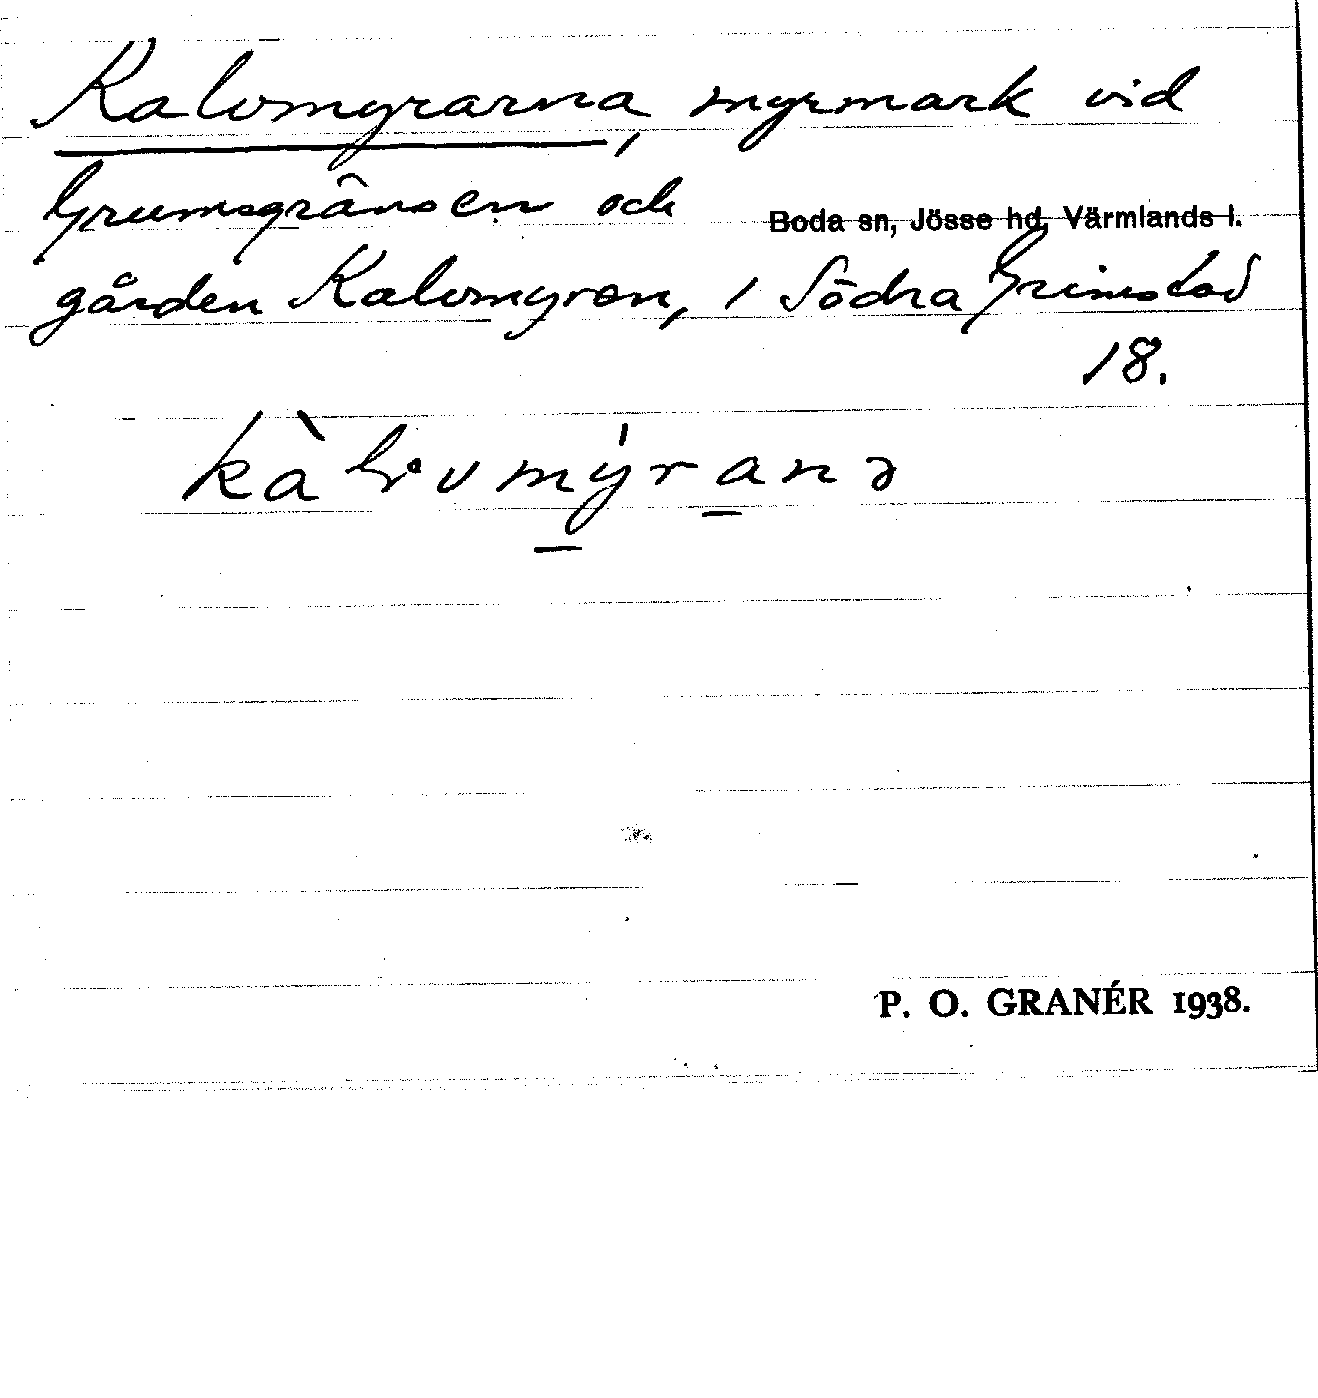 Kalvmyrarna, myrmark vid
Grumsgränsen och Boda sn, Jösse hd, Värmlands l.
gården Kalvmyren, i Södra Grimstad
18.
P. O. GRANÉR 1938.